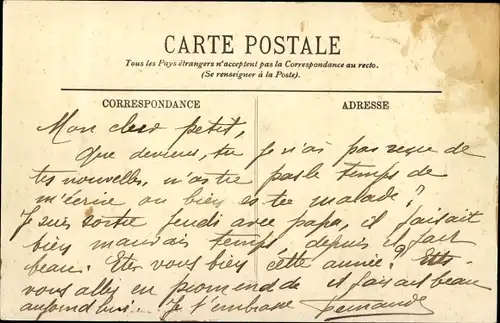 CARTE POSTALE
Tous les Pays étrangers n'acceptent pas la Correspondance au recto.
(Se renseigner à la Poste).
CORRESPONDANCE
ADRESSE
Mon cher petit,
Que deviens, tu je n'ai pas reçue de
tes nouvelles, n'as tu pas le temps de
m'écrire ou bien es tu malade?
Je suis sortie jeudi avec papa, il faisait
bien mauvais temps, depuis il fait
beau. Etes vous bien cette année?
vous allez en promenade il fait beau
aujourd'hui. Je t'embrasse Fernande